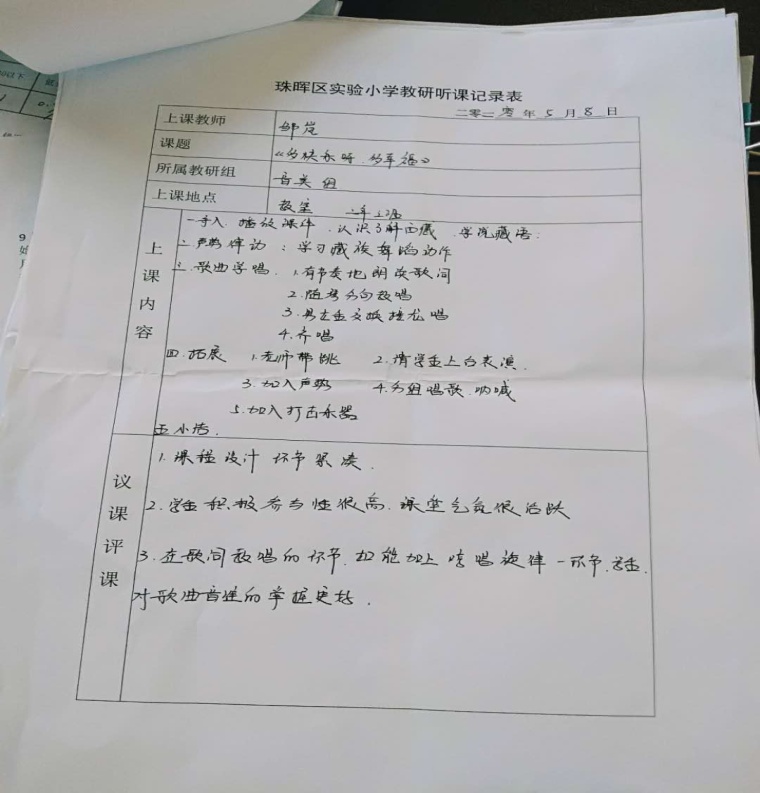 珠晖区实验小学教研听课记录表
二零二零年5月8日
上课教师 邹岚
课题 《多快乐呀 多幸福》
所属教研组 音美组
上课地点 教室
上课内容
一导入. 播放课件. 认识了解西藏. 学说藏语.
二. 声势律动: 学习藏族舞蹈动作
三. 歌曲学唱. 1. 有节奏地朗读歌词
2. 随琴分句教唱
3. 男女生交换接龙唱
4. 齐唱
四. 拓展 1. 老师带跳 2. 请学生上台表演.
3. 加入声势 4. 分组唱歌. 呐喊
5. 加入打击乐器
五小结.
议课评课
1. 课程设计环节紧凑.
2. 学生积极参与性很高. 课堂气氛很活跃
3. 在歌词教唱的环节. 加上哼唱旋律一环节. 学生.
对歌曲音准的掌握更好.